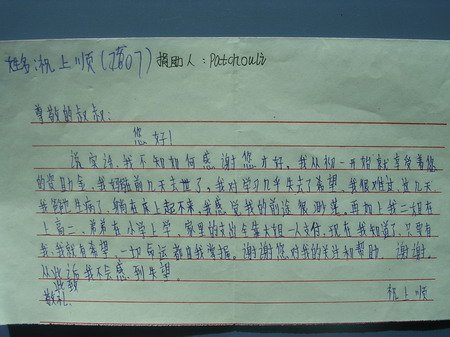 姓名:祝上顺(2607) 捐助人:Patchouli
尊敬的叔叔:
您好!
说实话,我不知如何感谢您才好。我从初一开始就享受着您
的资助金,我妈妈前几天去世了,我对学习几乎失去了希望,我很难过,这几天
我爸爸也生病了,躺在床上起不来,我感觉我的前途很渺茫。再加上我二姐在
上高二,弟弟在小学上学,家里的支出全靠大姐一人支付。现在我知道了,只要有
我,就有希望,一切命运都由我掌握。谢谢您对我的关注和帮助。谢谢。
从此话我不会感到失望。
此致
敬礼 祝上顺